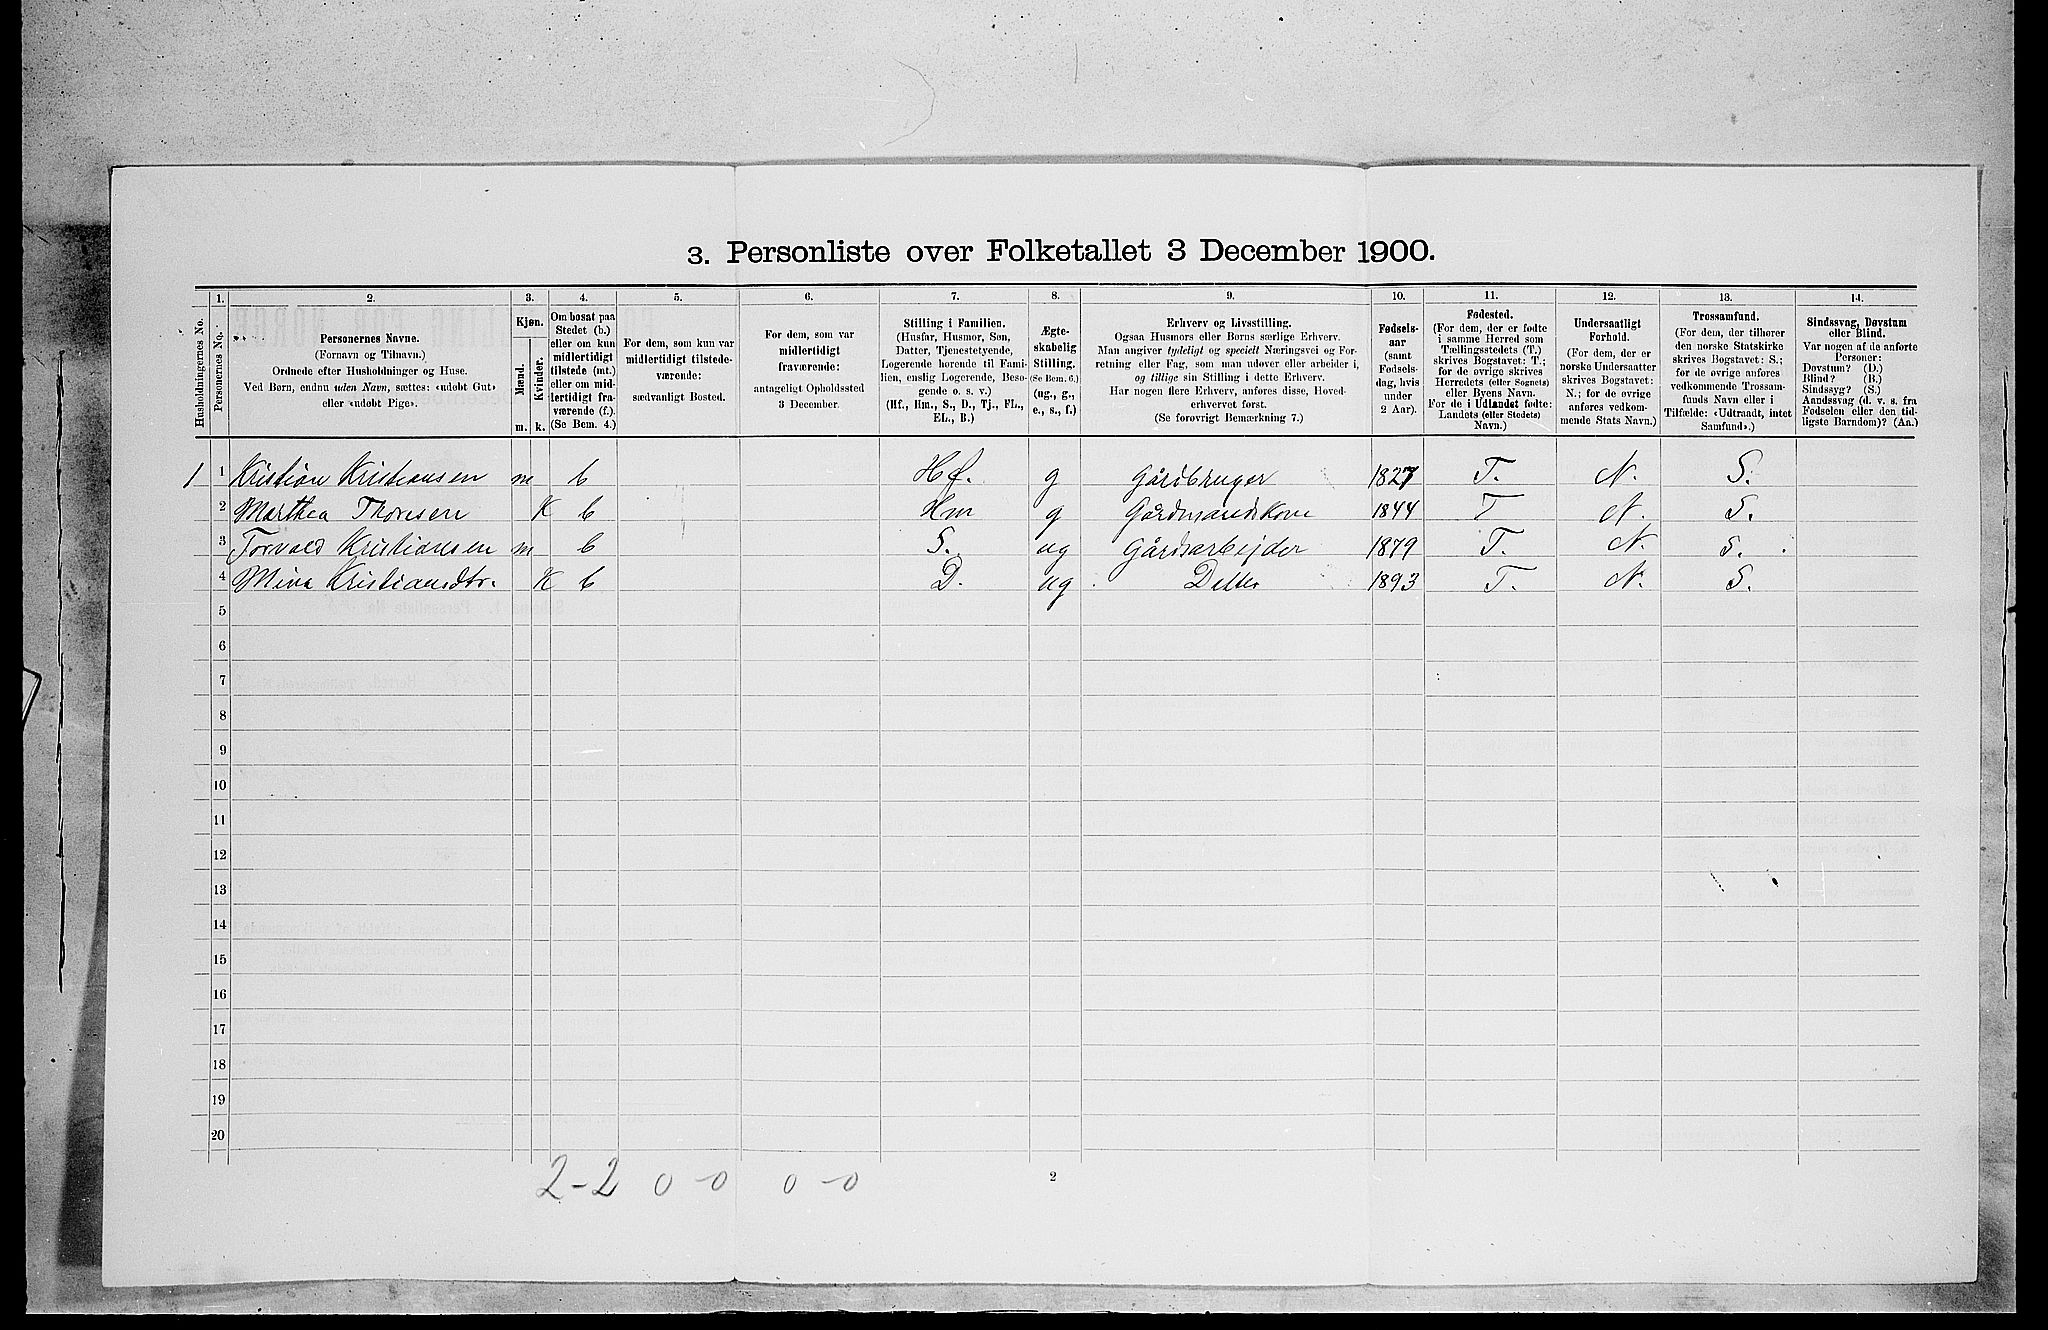 3. Personliste over Folketallet 3 December 1900.
Husholdningernes No.
1.
Personernes No.
2.
Personernes Navne.
(Fornavn og Tilnavn.)
Ordnede efter Husholdninger og Huse.
Ved Børn, endnu uden Navn, sættes: «udøbt Gut»
eller «udøbt Pige».
3.
Kjøn.
Mænd.
Kvinder.
m. k.
4.
Om bosat paa
Stedet (b.)
eller om kun
midlertidigt
tilstede (mt.)
eller om mid-
lertidigt fra-
værende (f.)
(Se Bem. 4.)
5.
For dem, som kun var
midlertidigt tilstede-
værende:
sædvanligt Bosted.
6.
For dem, som var
midlertidigt
fraværende:
antageligt Opholdssted
3 December.
7.
Stilling i Familien.
(Husfar, Husmor, Søn,
Datter, Tjenestetyende,
Logerende hørende til Fami-
lien, enslig Logerende, Besø-
gende o. s. v.)
(Hf., Hm., S., D., Tj., FL.,
EL., B.)
8.
Ægte-
skabelig
Stilling.
(Se Bem. 6.)
(ug., g.,
e., s., f.)
9.
Erhverv og Livsstilling.
Ogsaa Husmors eller Børns særlige Erhverv.
Man angiver tydeligt og specielt Næringsvei og For-
retning eller Fag, som man udøver eller arbeider i,
og tillige sin Stilling i dette Erhverv.
Har nogen flere Erhverv, anføres disse, Hoved-
erhvervet først.
(Se forøvrigt Bemærkning 7.)
10.
Fødsels-
aar
(samt
Fødsels-
dag, hvis
under
2 Aar).
11.
Fødested.
(For dem, der er fødte
i samme Herred som
Tællingsstedets (T.)
skrives Bogstavet: T.;
for de øvrige skrives
Herredets (eller Sognets)
eller Byens Navn.
For de i Udlandet fødte:
Landets (eller Stedets)
Navn.)
12.
Undersaatligt
Forhold.
(For dem, der er
norske Undersaatter
skrives Bogstavet:
N.; for de øvrige
anføres vedkom-
mende Stats Navn.)
13.
Trossamfund.
(For dem, der tilhører
den norske Statskirke
skrives Bogstavet: S.;
for de øvrige anføres
vedkommende Trossam-
funds Navn eller i
Tilfælde: «Udtraadt, intet
Samfund».)
14.
Sindssvag, Døvstum
eller Blind.
Var nogen af de anførte
Personer:
Døvstum? (D.)
Blind? (B.)
Sindssyg? (S.)
Aandssvag (d. v. s. fra
Fødselen eller den tid-
ligste Barndom)? (Aa.)
1 1 Kristian Kristiansen m b Hf. g Gårdbruger 1827 T. N. S.
2 Marthea Thoresen K b Hm g Gårdmandskone 1844 T N. S.
3 Torvald Kristiansen m b S. ug Gårdsarbejder 1879 T. N. S.
4 Mina Kristiansdtr. K b D. ug Datter 1893 T. N. S.
5
6
7
8
9
10
11
12
13
14
15
16
17
18
19
20
2-2 0-0 0-0
2